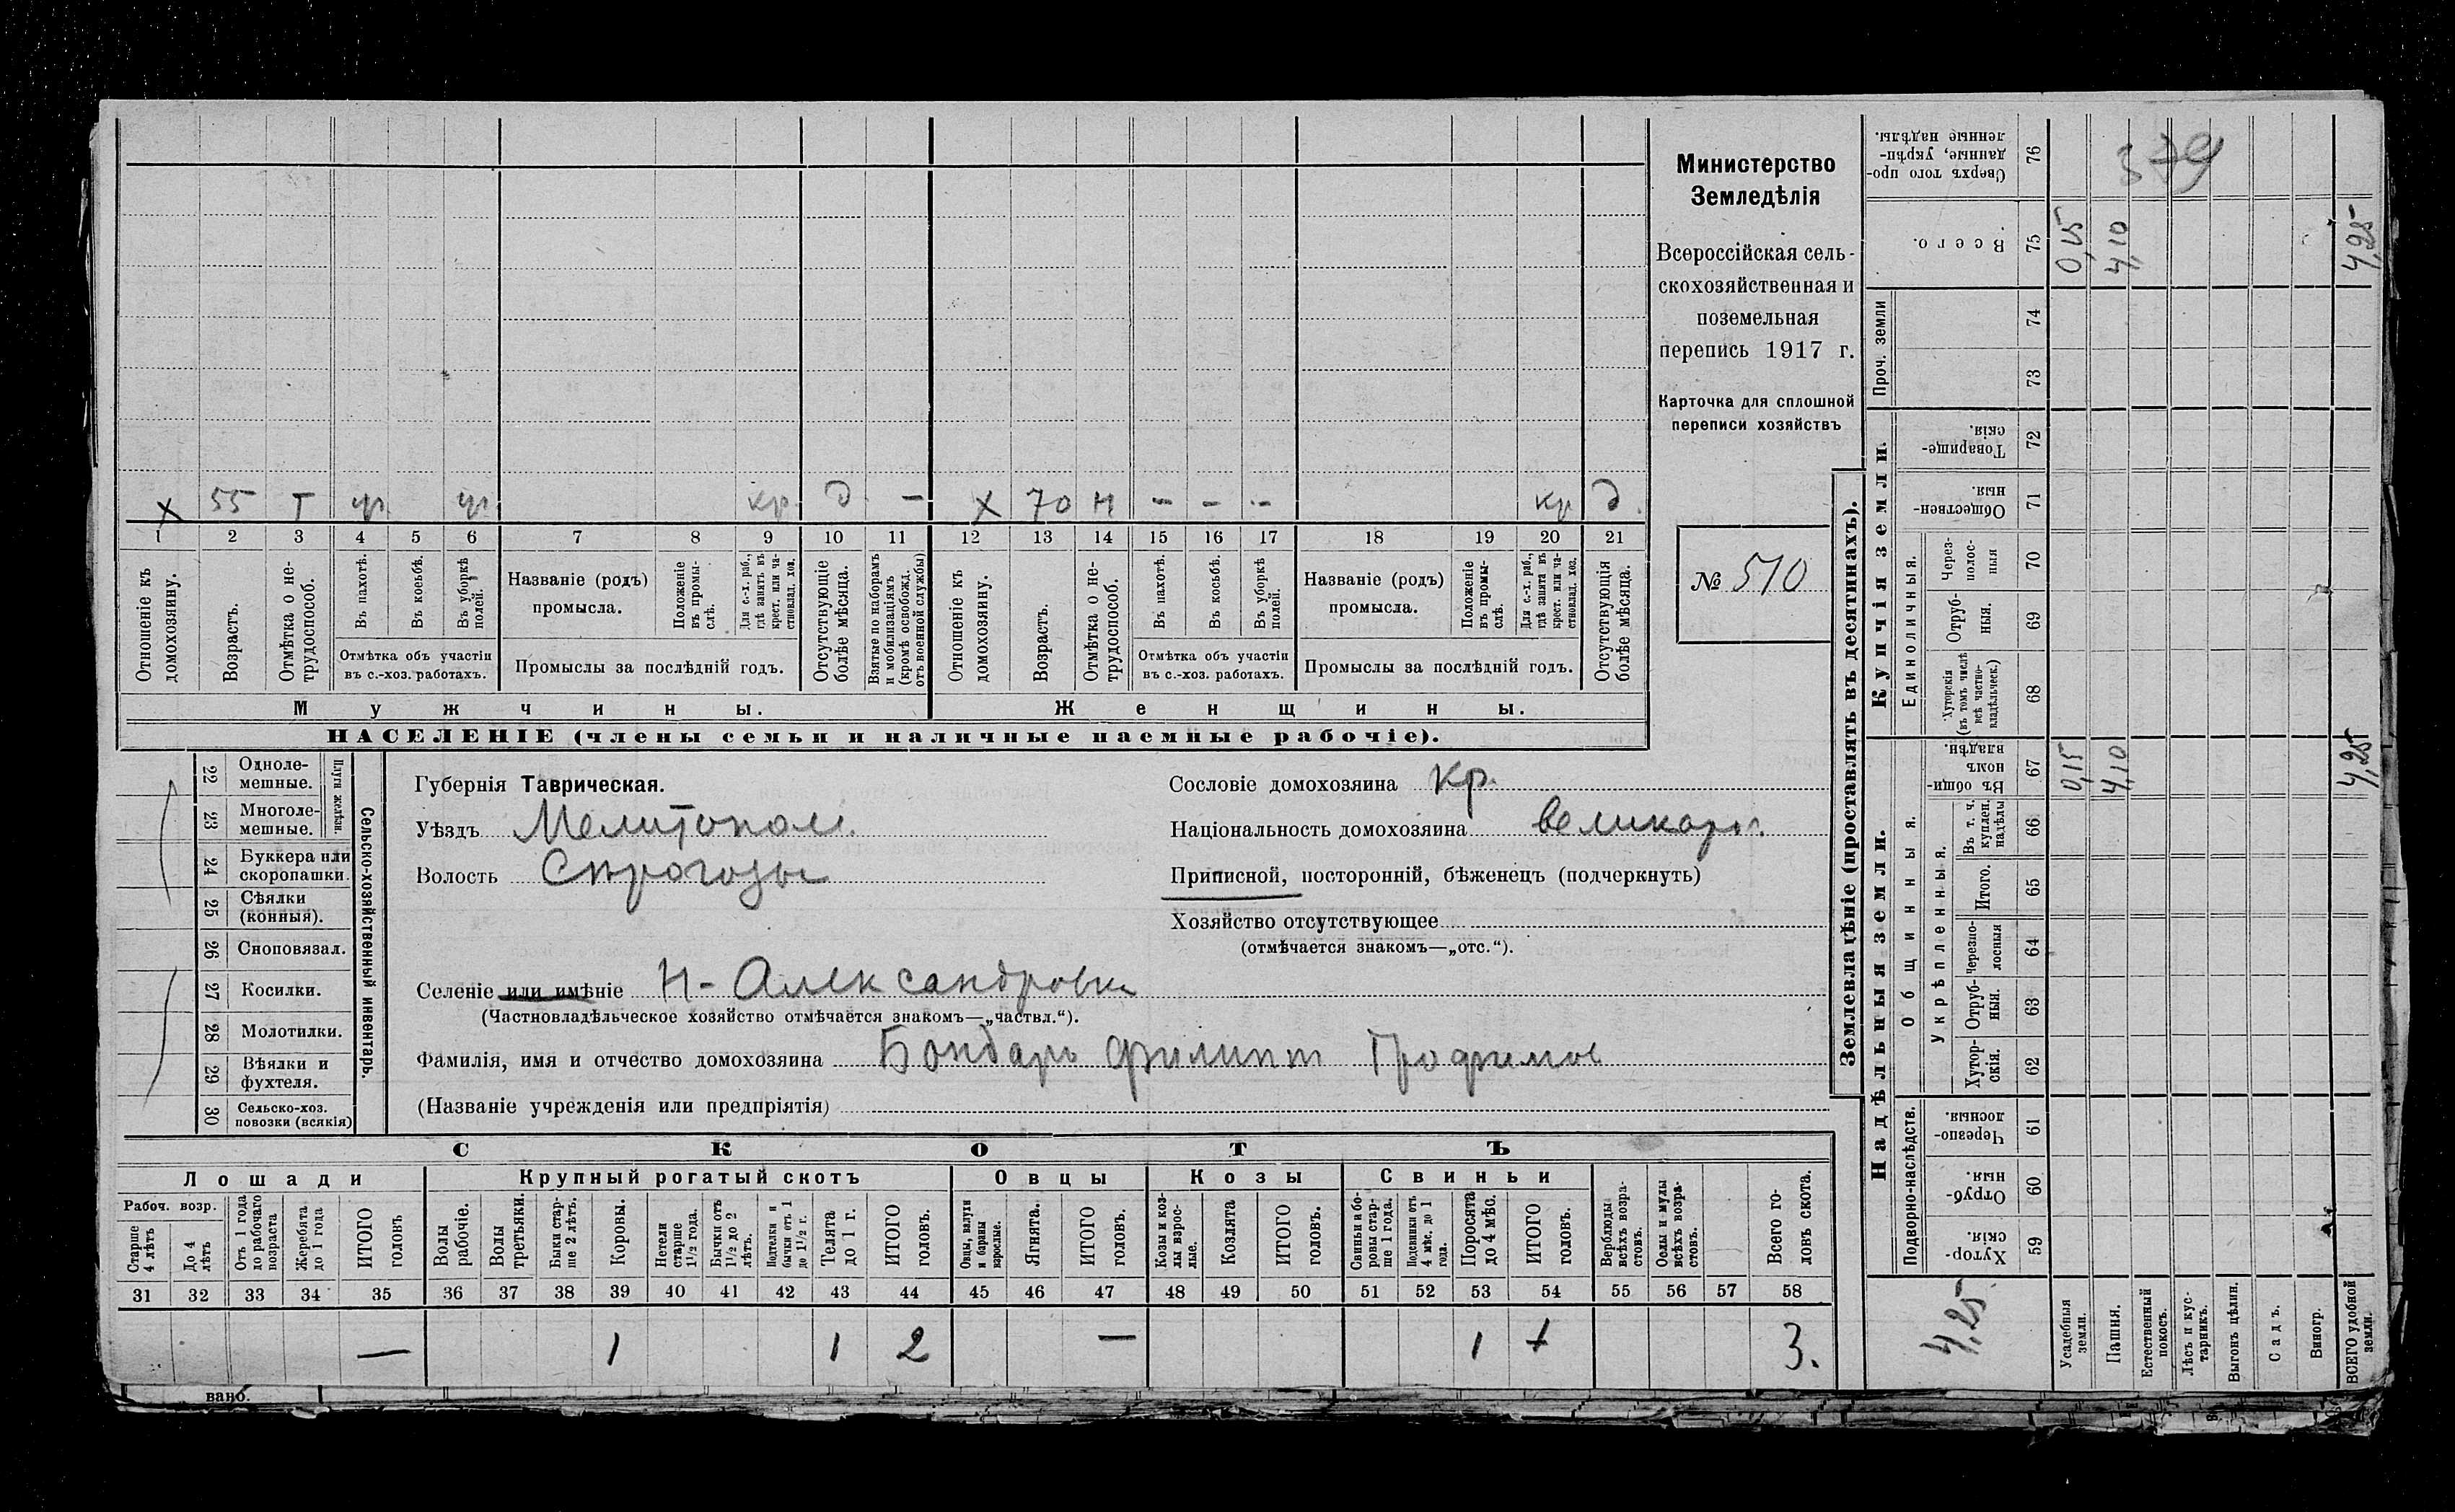 Министерство
Земледѣлія
Всероссійская сель-
скохозяйственная и
поземельная
перепись 1917 г.
Карточка для сплошной
переписи хозяйствъ
№ 510
х 55 т кр. д. — х 70 н - - - кр д.
1 2 3 4 5 6 7 8 9 10 11 12 13 14 15 16 17 18 19 20 21
Отношеніе къ домохозяину.
Возрастъ.
Отмѣтка о не-трудоспособ.
Въ пахотѣ.
Въ косьбѣ.
Въ уборкѣ полей.
Отмѣтка объ участіи
въ с.-хоз. работахъ.
Названіе (родъ)
промысла.
Положеніе въ промы-слѣ.
Для с.-х. раб., гдѣ занятъ въ крест. или ча-стновлад. хоз.
Промыслы за послѣдній годъ.
Отсутствующіе болѣе мѣсяца.
Взятые по наборамъ и мобилизаціямъ (кромѣ освобожд. отъ военной службы)
Отношеніе къ домохозяину.
Возрастъ.
Отмѣтка о не-трудоспособ.
Въ пахотѣ.
Въ косьбѣ.
Въ уборкѣ полей.
Отмѣтка объ участіи
въ с.-хоз. работахъ.
Названіе (родъ)
промысла.
Положеніе въ промы-слѣ.
Для с.-х. раб., гдѣ занята въ крест. или ча-стновлад. хоз.
Промыслы за послѣдній годъ.
Отсутствующія болѣе мѣсяца.
Мужчины. Женщины.
НАСЕЛЕНІЕ (члены семьи и наличные наемные рабочіе).
Сельско-хозяйственный инвентарь.
Плуги желѣзн.
22 Одноле-мешные.
23 Многоле-мешные.
24 Буккера или скоропашки.
25 Сѣялки (конныя).
26 Сноповязал.
27 Косилки.
28 Молотилки.
29 Вѣялки и фухтеля.
30 Сельско-хоз. повозки (всякія)
Губернія Таврическая.
Уѣздъ Мелитопол.
Волость
Селеніе или имѣніе Н-Александровка
(Частновладѣльческое хозяйство отмѣчается знакомъ—„частвл.“).
Фамилія, имя и отчество домохозяина Бондарь Филиппъ Трофимов
(Названіе учрежденія или предпріятія)
Сословіе домохозяина кр.
Національность домохозяина великорос.
Приписной, посторонній, бѣженецъ (подчеркнуть)
Хозяйство отсутствующее
(отмѣчается знакомъ—„отс.“).
СКОТЪ
Лошади Крупный рогатый скотъ Овцы Козы Свиньи
Рабоч. возр.
Старше 4 лѣтъ
До 4 лѣтъ
Отъ 1 года до рабочаго возраста
Жеребята до 1 года
ИТОГО головъ
Волы рабочіе.
Волы третьяки.
Быки стар-ше 2 лѣтъ.
Коровы.
Нетели старше 1½ года.
Бычки отъ 1½ до 2 лѣтъ.
Подтелки и бычки отъ 1 до 1½ г.
Телята до 1 г.
ИТОГО головъ.
Овцы, валухи и бараны взрослые.
Ягнята.
ИТОГО головъ.
Козы и коз-лы взрос-лые.
Козлята
ИТОГО головъ.
Свиньи и бо-ровы стар-ше 1 года.
Подсвинки отъ 4 мѣс. до 1 года.
Поросята до 4 мѣс.
ИТОГО головъ.
Верблюды всѣхъ возра-стовъ.
Ослы и мулы всѣхъ возра-стовъ.
Всего го-ловъ скота.
31 32 33 34 35 36 37 38 39 40 41 42 43 44 45 46 47 48 49 50 51 52 53 54 55 56 57 58
— 1 1 2 — 1 3.
вано.
Землевладѣніе (проставлять въ десятинахъ).
Надѣльныя земли. Купчія земли. Проч. земли
Подворно-наслѣдств.
Общинныя.
Укрѣпленныя.
Единоличныя.
59 Хутор-скія.
60 Отруб-ныя.
61 Черезпо-лосныя.
62 Хутор-скія.
63 Отруб-ныя.
64 Черезпо-лосныя
65 Итого.
66 Въ т. ч. куплен. надѣлы
67 Въ общи-номъ владѣн.
68 Хуторскія (въ томъ числѣ всѣ частно-владѣльческ.)
69 Отруб-ныя.
70 Через-полос-ныя
71 Обществен-ныя.
72 Товарище-скія.
73
74
75 Всего.
76 Сверхъ того про-данные, укрѣп-ленные надѣлы.
Усадебныя земли. 0,15 0,15
Пашня. 4,10 4,10
Естественный покосъ.
Лѣсъ и кус-тарникъ.
Выгонъ цѣлин.
Садъ.
Виногр.
ВСЕГО удобной земли. 4,25 4,25
4,25
379